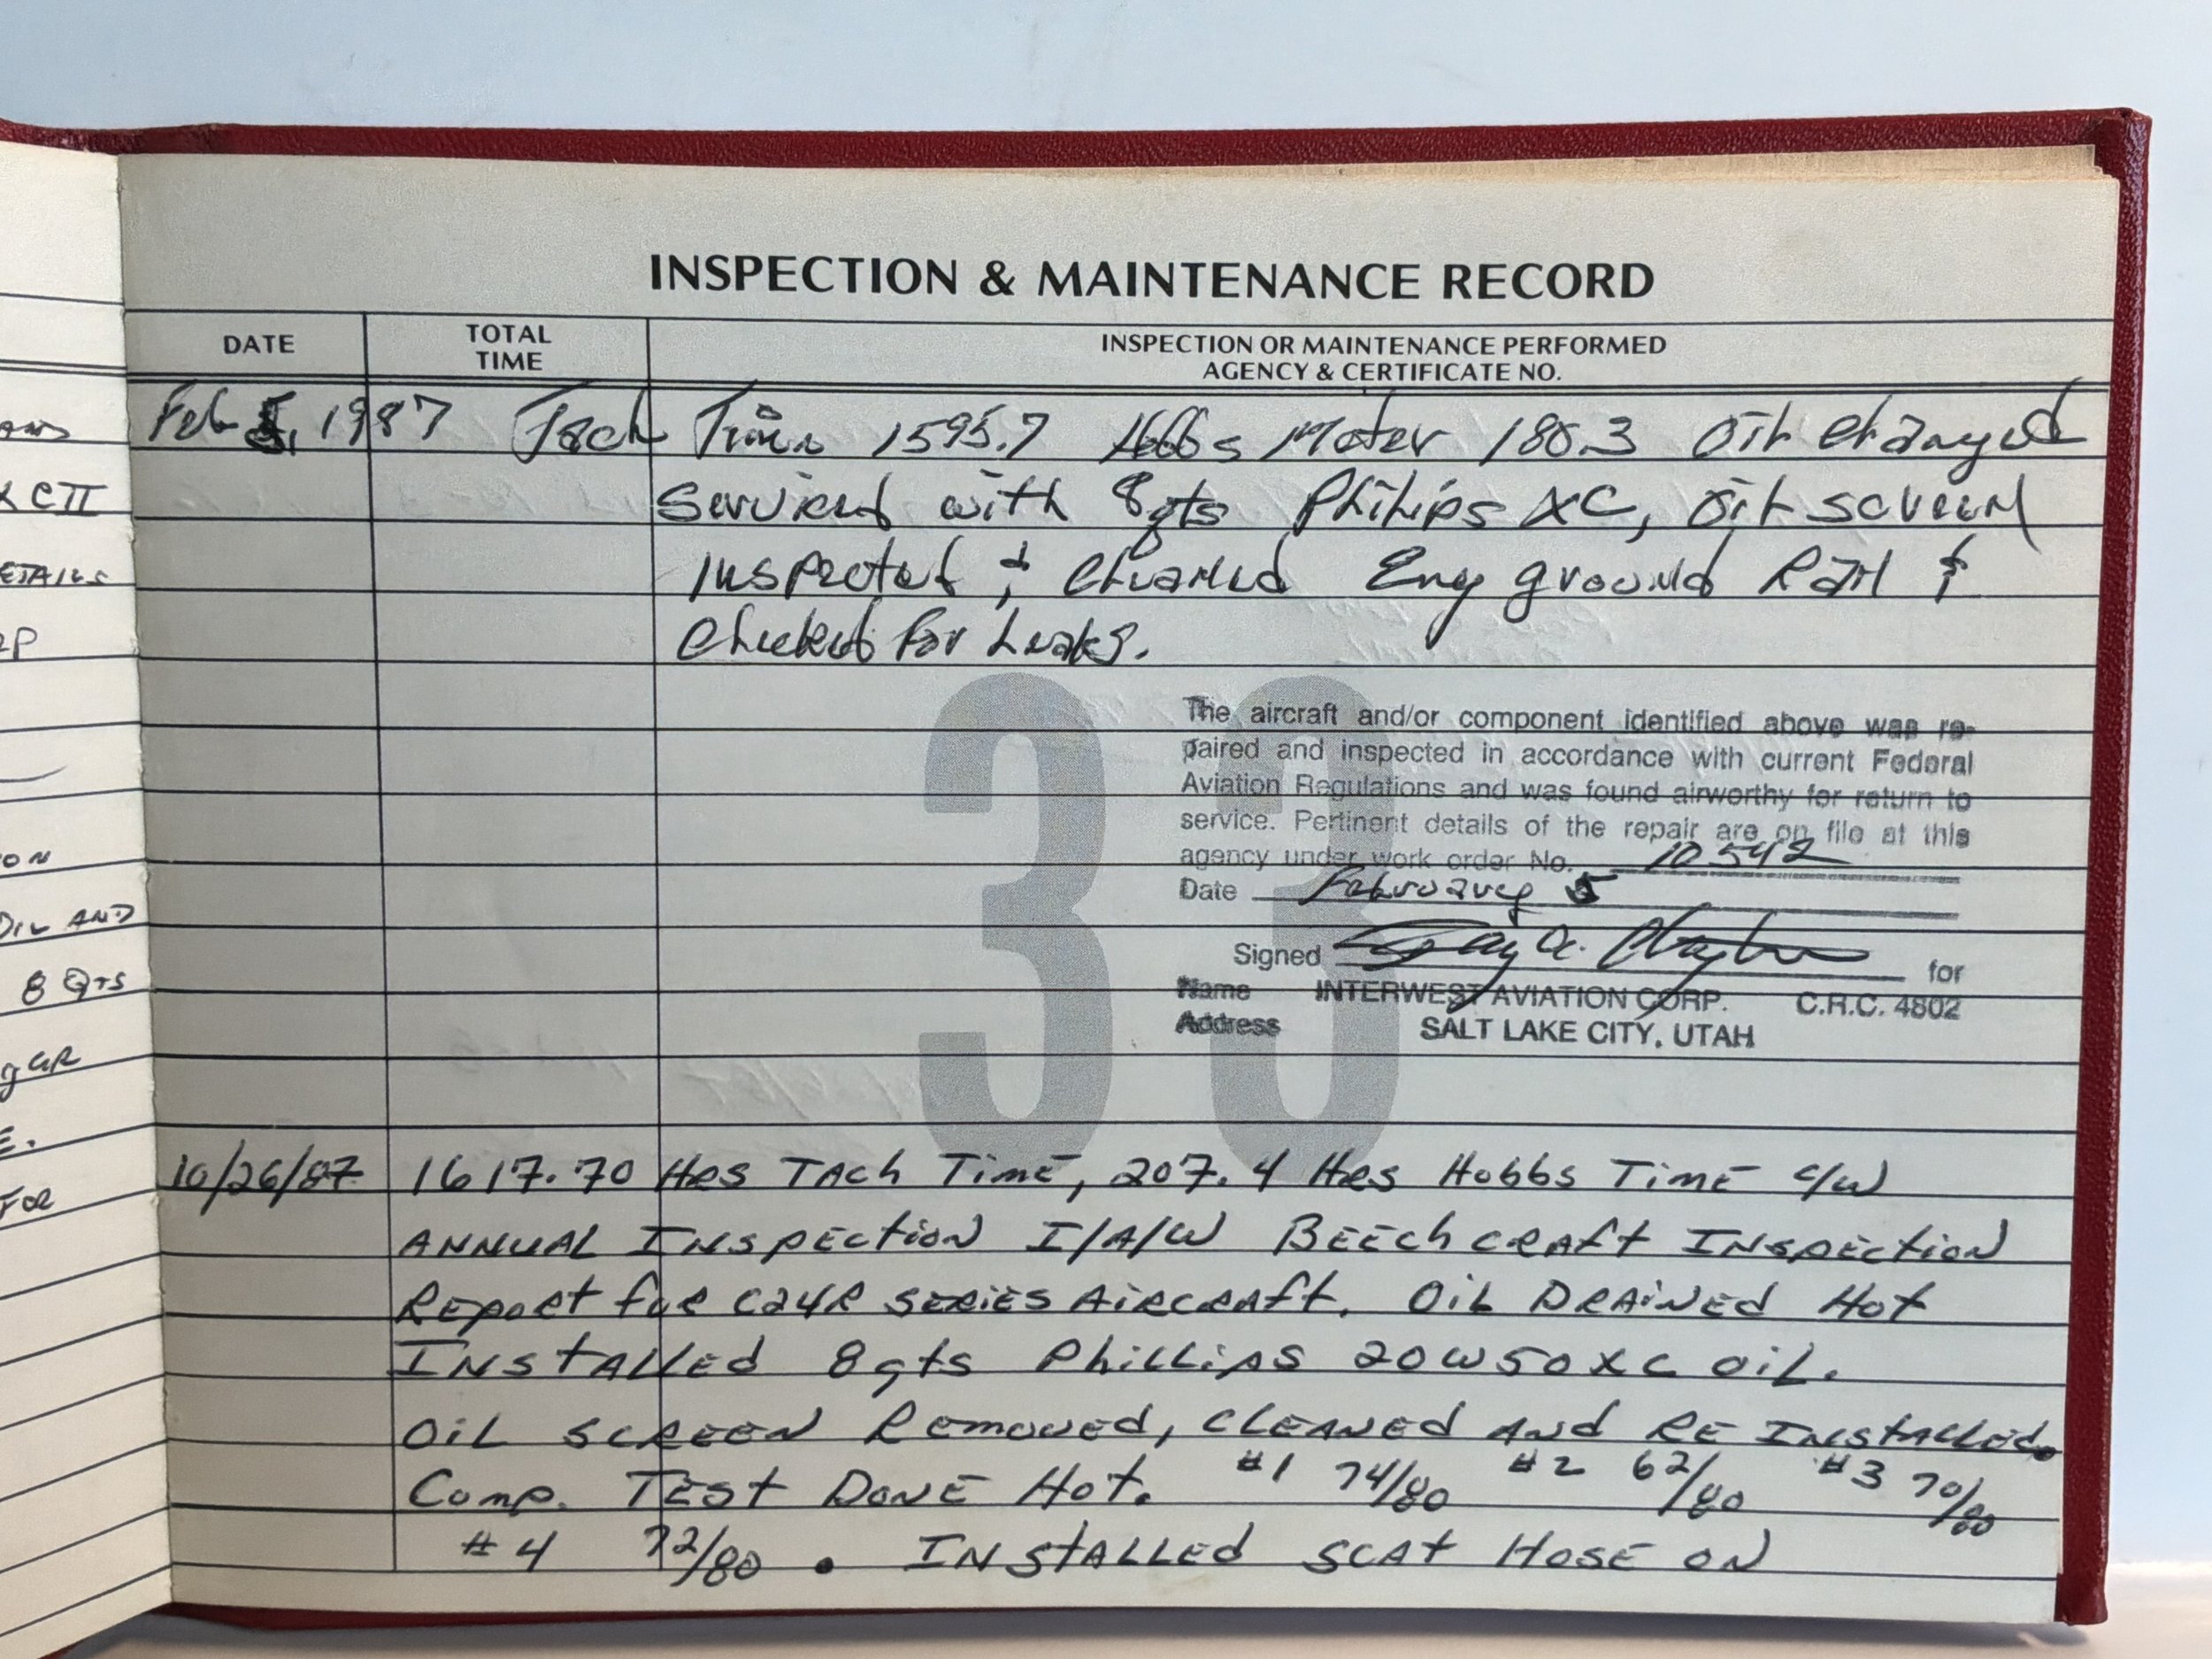 INSPECTION & MAINTENANCE RECORD
DATE
TOTAL
TIME
INSPECTION OR MAINTENANCE PERFORMED
AGENCY & CERTIFICATE NO.
Feb 5, 1987 Tach Time 1595.7 Hobbs Meter 180.3 Oil changed
Serviced with 8qts Philips XC, Oil screen
Inspected & cleaned Eng ground Ran &
checked for Leaks.
33
The aircraft and/or component identified above was re-
paired and inspected in accordance with current Federal
Aviation Regulations and was found airworthy for return to
service. Pertinent details of the repair are on file at this
agency under work order No. 10542
Date February 5
Signed for
Name INTERWEST AVIATION CORP. C.R.C. 4802
Address SALT LAKE CITY, UTAH
10/26/87 1617.70 HRS TACH TIME, 207.4 HRS HOBBS TIME C/W
ANNUAL INSPECTION I/A/W BEECHCRAFT INSPECTION
REPORT for C24R SERIES AIRCRAFT. OIL DRAINED HOT
INSTALLED 8qts PHILLIPS 20W50XC OIL.
OIL SCREEN REMOVED, CLEANED AND RE INSTALLED.
COMP. TEST DONE HOT. #1 74/80 #2 62/80 #3 70/80
#4 72/80 . INSTALLED SCAT HOSE ON
AND
CII
ETAILS
ON
OIL AND
8 QTS
E.
FOR